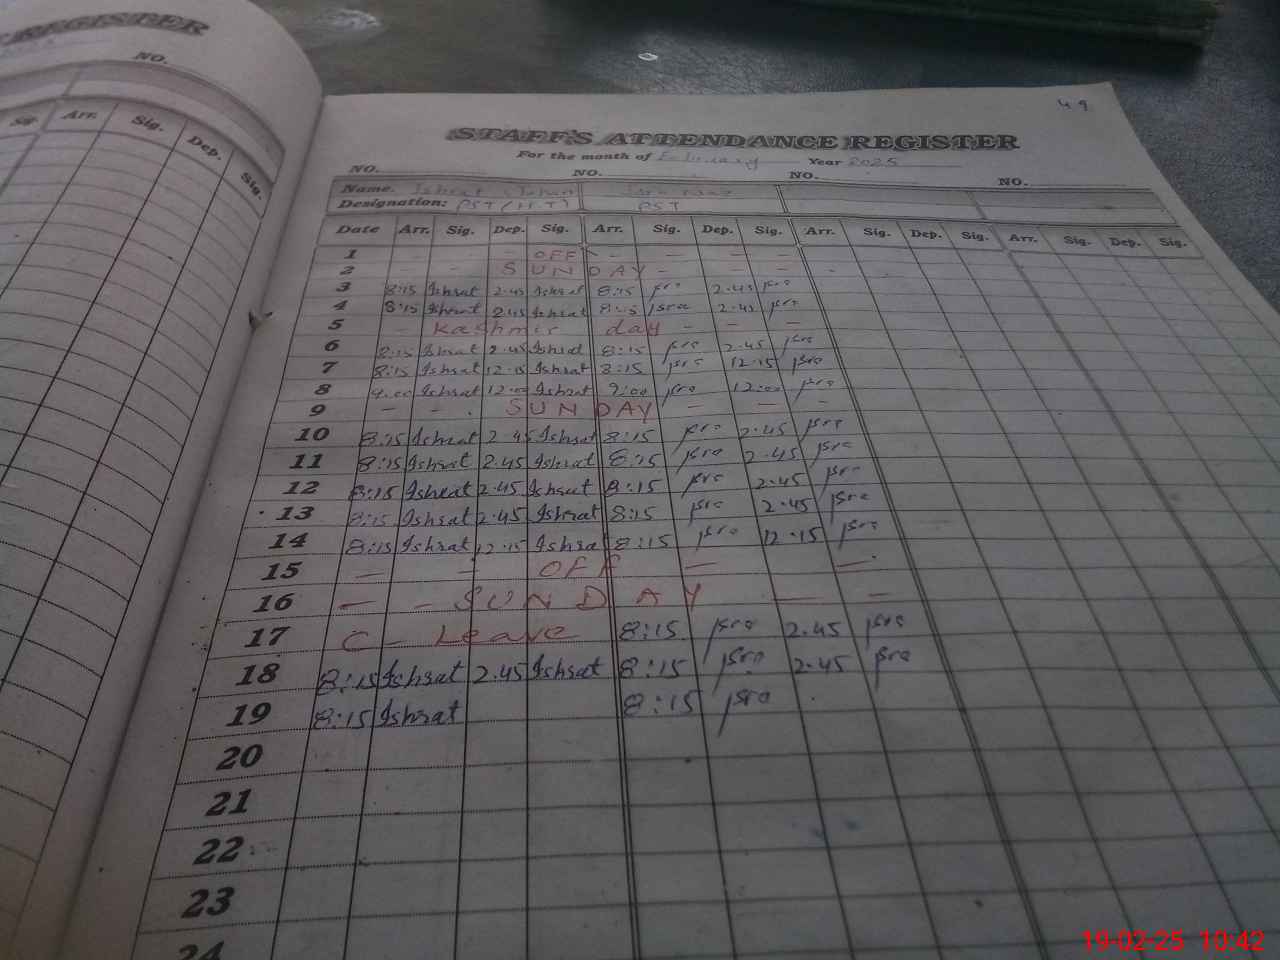 REGISTER
NO.
Sig. Arr. Sig. Dep. Sig.
49
STAFF'S ATTENDANCE REGISTER
For the month of February Year 2025
NO. NO. NO. NO.
Name. Ishrat
Designation: PST (H.T) PST
Date Arr. Sig. Dep. Sig. Arr. Sig. Dep. Sig. Arr. Sig. Dep. Sig. Arr. Sig. Dep. Sig.
1 - OFF - - - -
2 - - SUNDAY - - -
3 8:15 Ishrat 2.45 Ishrat 8:15 2.45
4 8:15 Ishrat 2.45 Ishrat 8:15 2.45
5 - Kashmir day - - -
6 8:15 Ishrat 2.45 Ishrat 8:15 2.45
7 8:15 Ishrat 12.15 Ishrat 8:15 12.15
8 9.00 Ishrat 12:00 Ishrat 9:00 12:00
9 - - . SUNDAY - - -
10 8:15 Ishrat 2.45 Ishrat 8:15 2.45
11 8:15 Ishrat 2.45 Ishrat 8:15 2.45
12 8:15 Ishrat 2.45 Ishrat 8:15 2.45
13 8:15 Ishrat 2.45 Ishrat 8:15 2.45
14 8:15 Ishrat 12.15 Ishrat 8:15 12.15
15 - - OFF - -
16 - - SUNDAY - -
17 C - Leave 8:15 2.45
18 8:15 Ishrat 2.45 Ishrat 8:15 2.45
19 8:15 Ishrat 8:15
20
21
22
23
24
19-02-25 10:42